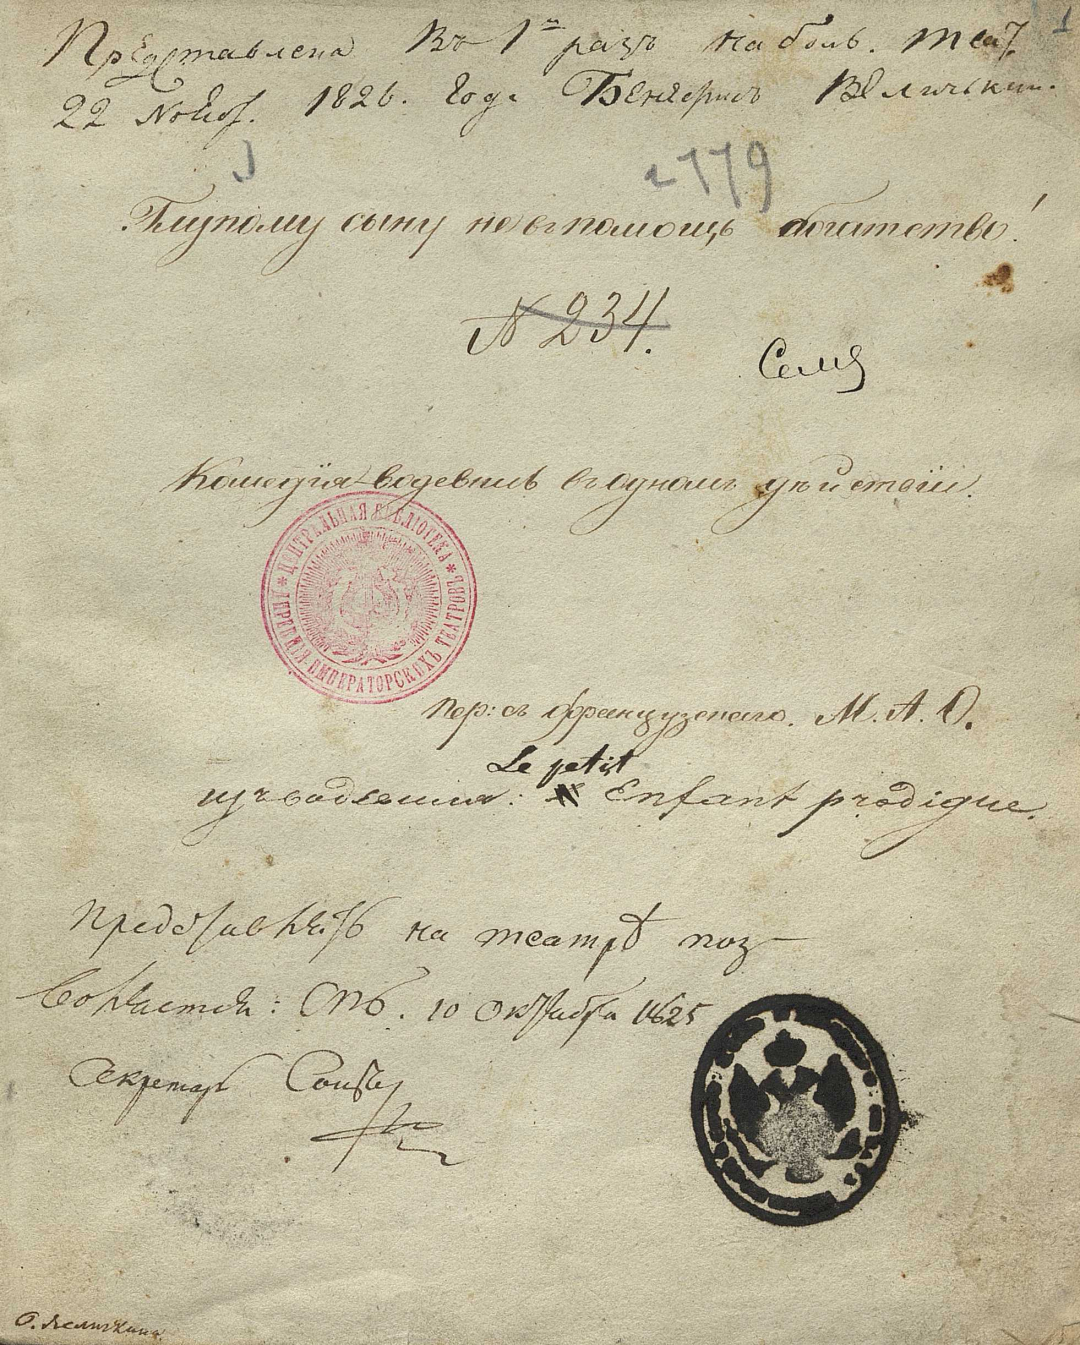 1
Представлена Въ 1й разъ на боль. теат.
22 Нояб. 1826. Года Бенефисъ Величкин.
779
Глупому сыну не въ помощь богатство!
N 234.
Комедія-водевиль въ одномъ дѣйствіи.
ЦЕНТРАЛЬНАЯ БИБЛІОТЕКА
ДИРЕКЦІЯ ИМПЕРАТОРСКИХЪ ТЕАТРОВЪ
пер: съ французскаго. М. А. О.
Le petit
изъ водевиля: Enfant prodigue.
Представлять на театрѣ поз-
воляется: СПб. 10 октября 1825
Секретарь
О. Величкина.